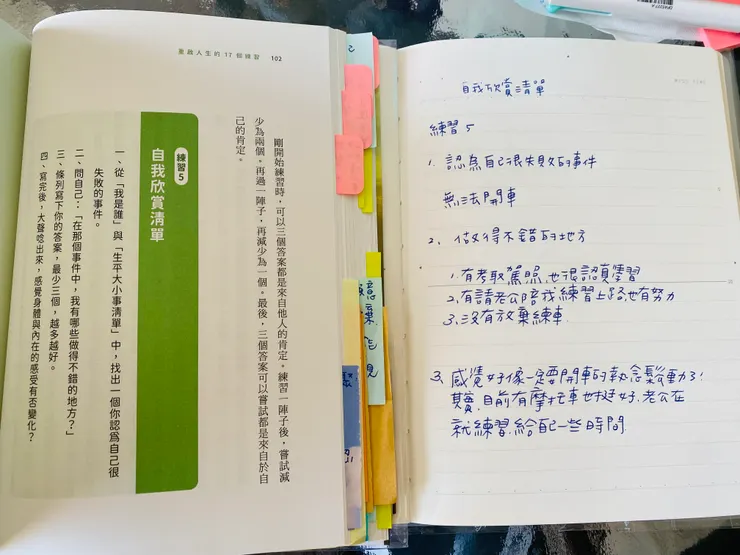 重啟人生的 17 個練習 102
剛開始練習時，可以三個答案都是來自他人的肯定。練習一陣子後，嘗試減
少為兩個。再過一陣子，再減少為一個。最後，三個答案可以嘗試都是來自於自
己的肯定。
練習 5
自我欣賞清單
一、從「我是誰」與「生平大小事清單」中，找出一個你認為自己很
失敗的事件。
二、問自己：「在那個事件中，我有哪些做得不錯的地方？」
三、條列寫下你的答案，最少三個，越多越好。
四、寫完後，大聲唸出來，感覺身體與內在的感受有否變化？
自我欣賞清單
練習 5
1. 認為自己很失敗的事件
無法開車
2. 做得不錯的地方
1. 有考取駕照，也很認真學習
2. 有請老公陪我練習上路，也有努力
3. 沒有放棄練車
3. 感覺好像一定要開車的執念鬆動了！
其實，目前有摩托車也挺好，老公在
就練習，給自己一些時間